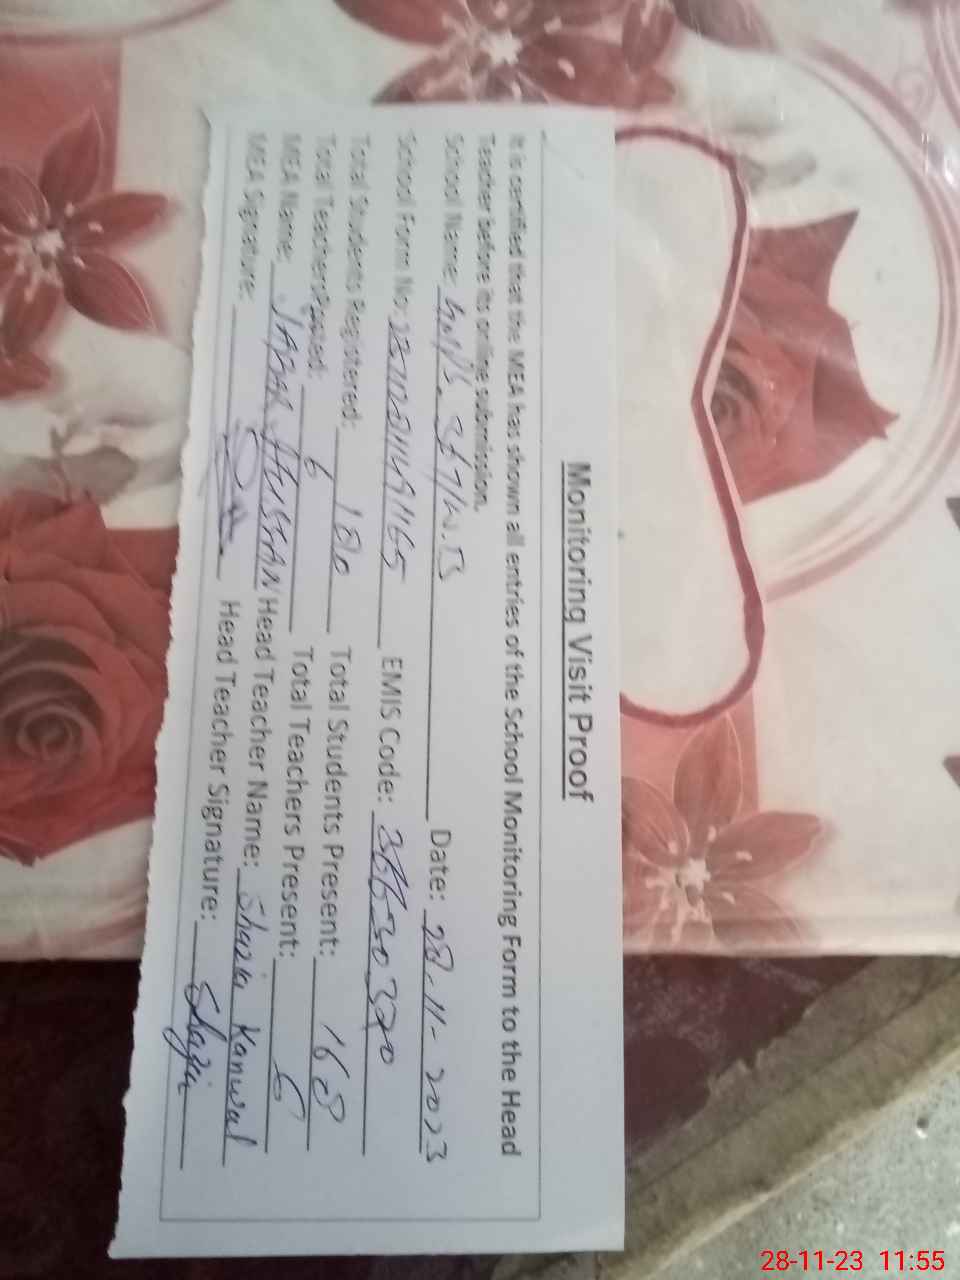 Monitoring Visit Proof
It is certified that the MEA has shown all entries of the School Monitoring Form to the Head
Teacher before its online submission.
School Name: 367/W.B Date: 28-11-2023
School Form No: EMIS Code:
Total Students Registered: 180 Total Students Present: 168
Total Teachers Posted: 6 Total Teachers Present: 6
MEA Name: JABAR HUSSAN Head Teacher Name: Shazia Kanwal
MEA Signature: Head Teacher Signature: Shazia
28-11-23 11:55